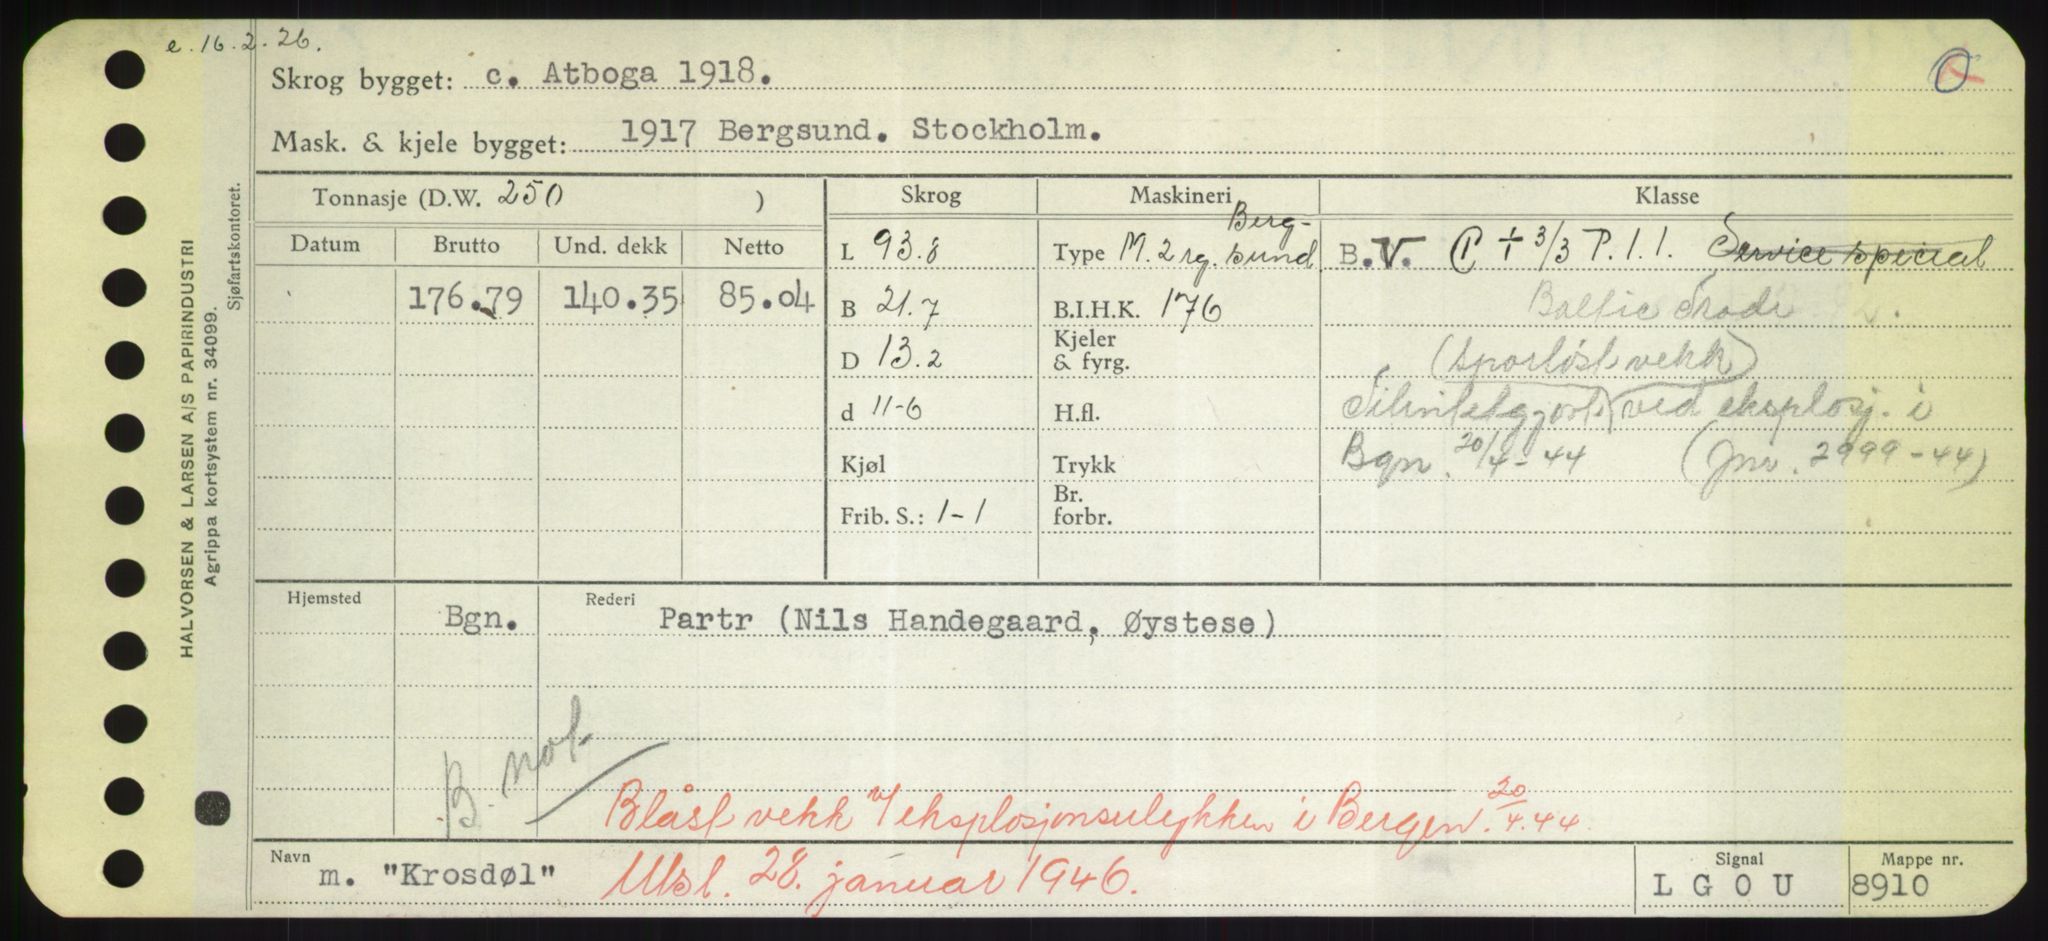 e. 16.2.26.
O
Skrog bygget: c. Atboga 1918.
Mask. & kjele bygget: 1917 Bergsund. Stockholm.
HALVORSEN & LARSEN A/S PAPIRINDUSTRI
Agrippa kortsystem nr. 34099.
Sjøfartskontoret.
Tonnasje (D.W. 250 ) Skrog Maskineri Klasse
Datum Brutto Und. dekk Netto
176.79 140.35 85.04
L 93.8
B 21.7
D 13.2
d 11-6
Kjøl
Frib. S.: 1-1
Type M. 2 rg. Berg-
sund.
B.I.H.K. 176
Kjeler
& fyrg.
H.fl.
Trykk
Br.
forbr.
B.V. + 3/3 P.1.1. Service special
Baltic
(sporløst vekk)
Tilintetgjort ved eksplosj. i
Bgn. 20/4-44 (Jnr. 2999-44)
Hjemsted Bgn. Rederi Partr (Nils Handegaard, Øystese)
B. not.
Blåst vekk v/ eksplosjonsulykken i Bergen. 20/4.44.
Navn m. "Krosdøl" Utsl. 28. januar 1946.
Signal LGOU
Mappe nr. 8910